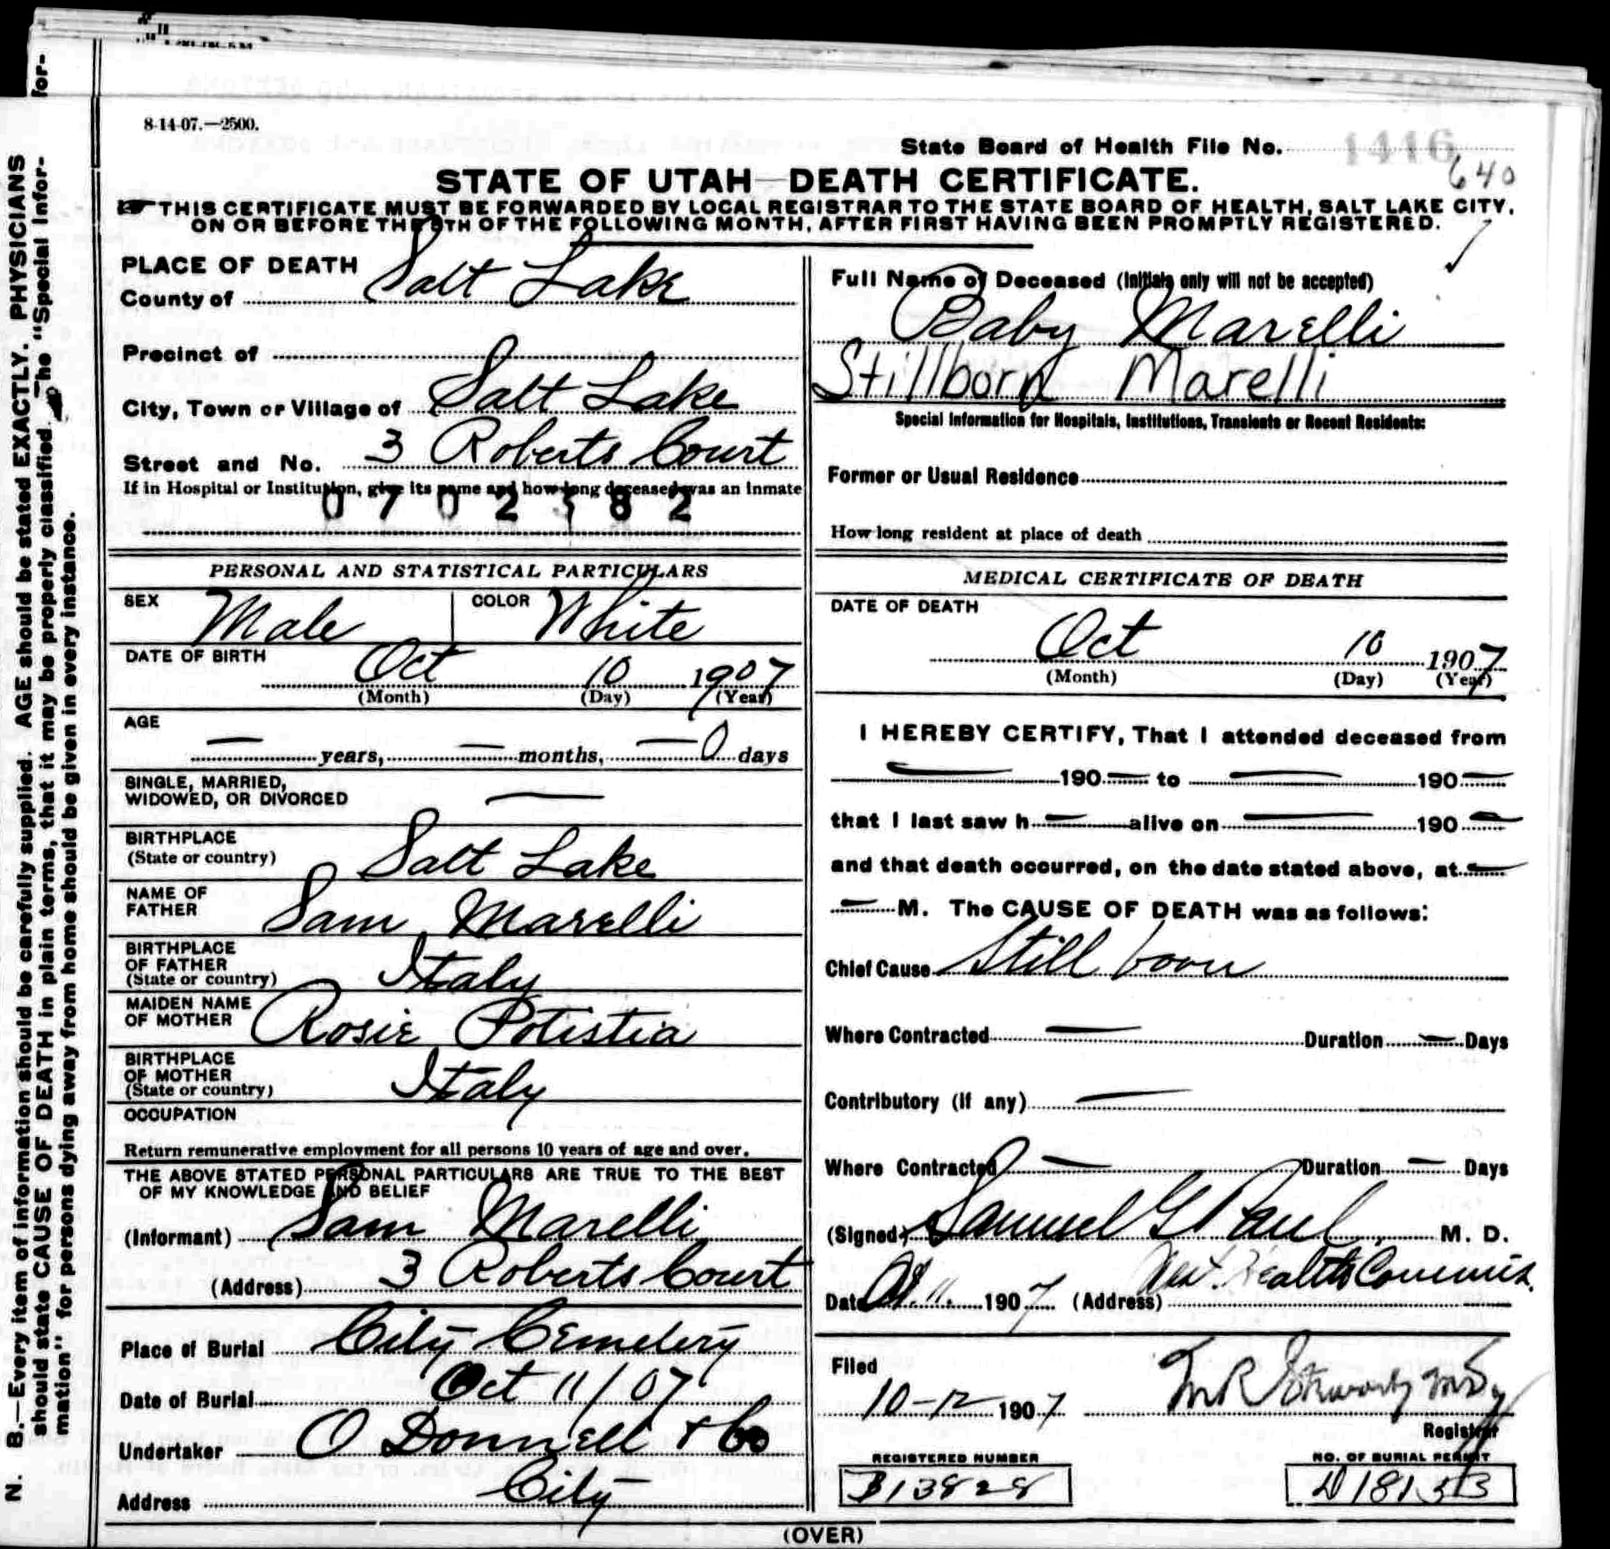 8-14-07.—2500.
State Board of Health File No. 1416
640
STATE OF UTAH—DEATH CERTIFICATE.
THIS CERTIFICATE MUST BE FORWARDED BY LOCAL REGISTRAR TO THE STATE BOARD OF HEALTH, SALT LAKE CITY,
ON OR BEFORE THE 5TH OF THE FOLLOWING MONTH, AFTER FIRST HAVING BEEN PROMPTLY REGISTERED.
PLACE OF DEATH
County of Salt Lake
Precinct of
City, Town or Village of Salt Lake
Street and No. 3 Roberts Court
If in Hospital or Institution, give its name and how long deceased was an inmate
0702382
PERSONAL AND STATISTICAL PARTICULARS
SEX Male COLOR White
DATE OF BIRTH Oct 10 1907
(Month) (Day) (Year)
AGE
— years, — months, — 0 days
SINGLE, MARRIED,
WIDOWED, OR DIVORCED —
BIRTHPLACE
(State or country) Salt Lake
NAME OF
FATHER Sam Marelli
BIRTHPLACE
OF FATHER
(State or country) Italy
MAIDEN NAME
OF MOTHER Rosie Potestia
BIRTHPLACE
OF MOTHER
(State or country) Italy
OCCUPATION
Return remunerative employment for all persons 10 years of age and over.
THE ABOVE STATED PERSONAL PARTICULARS ARE TRUE TO THE BEST
OF MY KNOWLEDGE AND BELIEF
(Informant) Sam Marelli
(Address) 3 Roberts Court
Place of Burial City Cemetery
Date of Burial Oct 11/07
Undertaker O Donnell & Co
Address City
Full Name of Deceased (Initials only will not be accepted)
Baby Marelli
Stillborn Marelli
Special Information for Hospitals, Institutions, Transients or Recent Residents:
Former or Usual Residence
How long resident at place of death
MEDICAL CERTIFICATE OF DEATH
DATE OF DEATH
Oct 10 1907
(Month) (Day) (Year)
I HEREBY CERTIFY, That I attended deceased from
— 190 — to — 190 —
that I last saw h — alive on — 190 —
and that death occurred, on the date stated above, at —
— M. The CAUSE OF DEATH was as follows:
Chief Cause Still born
Where Contracted — Duration — Days
Contributory (if any) —
Where Contracted — Duration — Days
(Signed) Samuel G Paul M. D.
Date Oct. 11. 1907 (Address) Health Commis.
Filed
10-12 1907
Registrar
REGISTERED NUMBER
B13828
NO. OF BURIAL PERMIT
D18153
(OVER)
N. B.—Every item of information should be carefully supplied. AGE should be stated EXACTLY. PHYSICIANS
should state CAUSE OF DEATH in plain terms, that it may be properly classified. The "Special Infor-
mation" for persons dying away from home should be given in every instance.